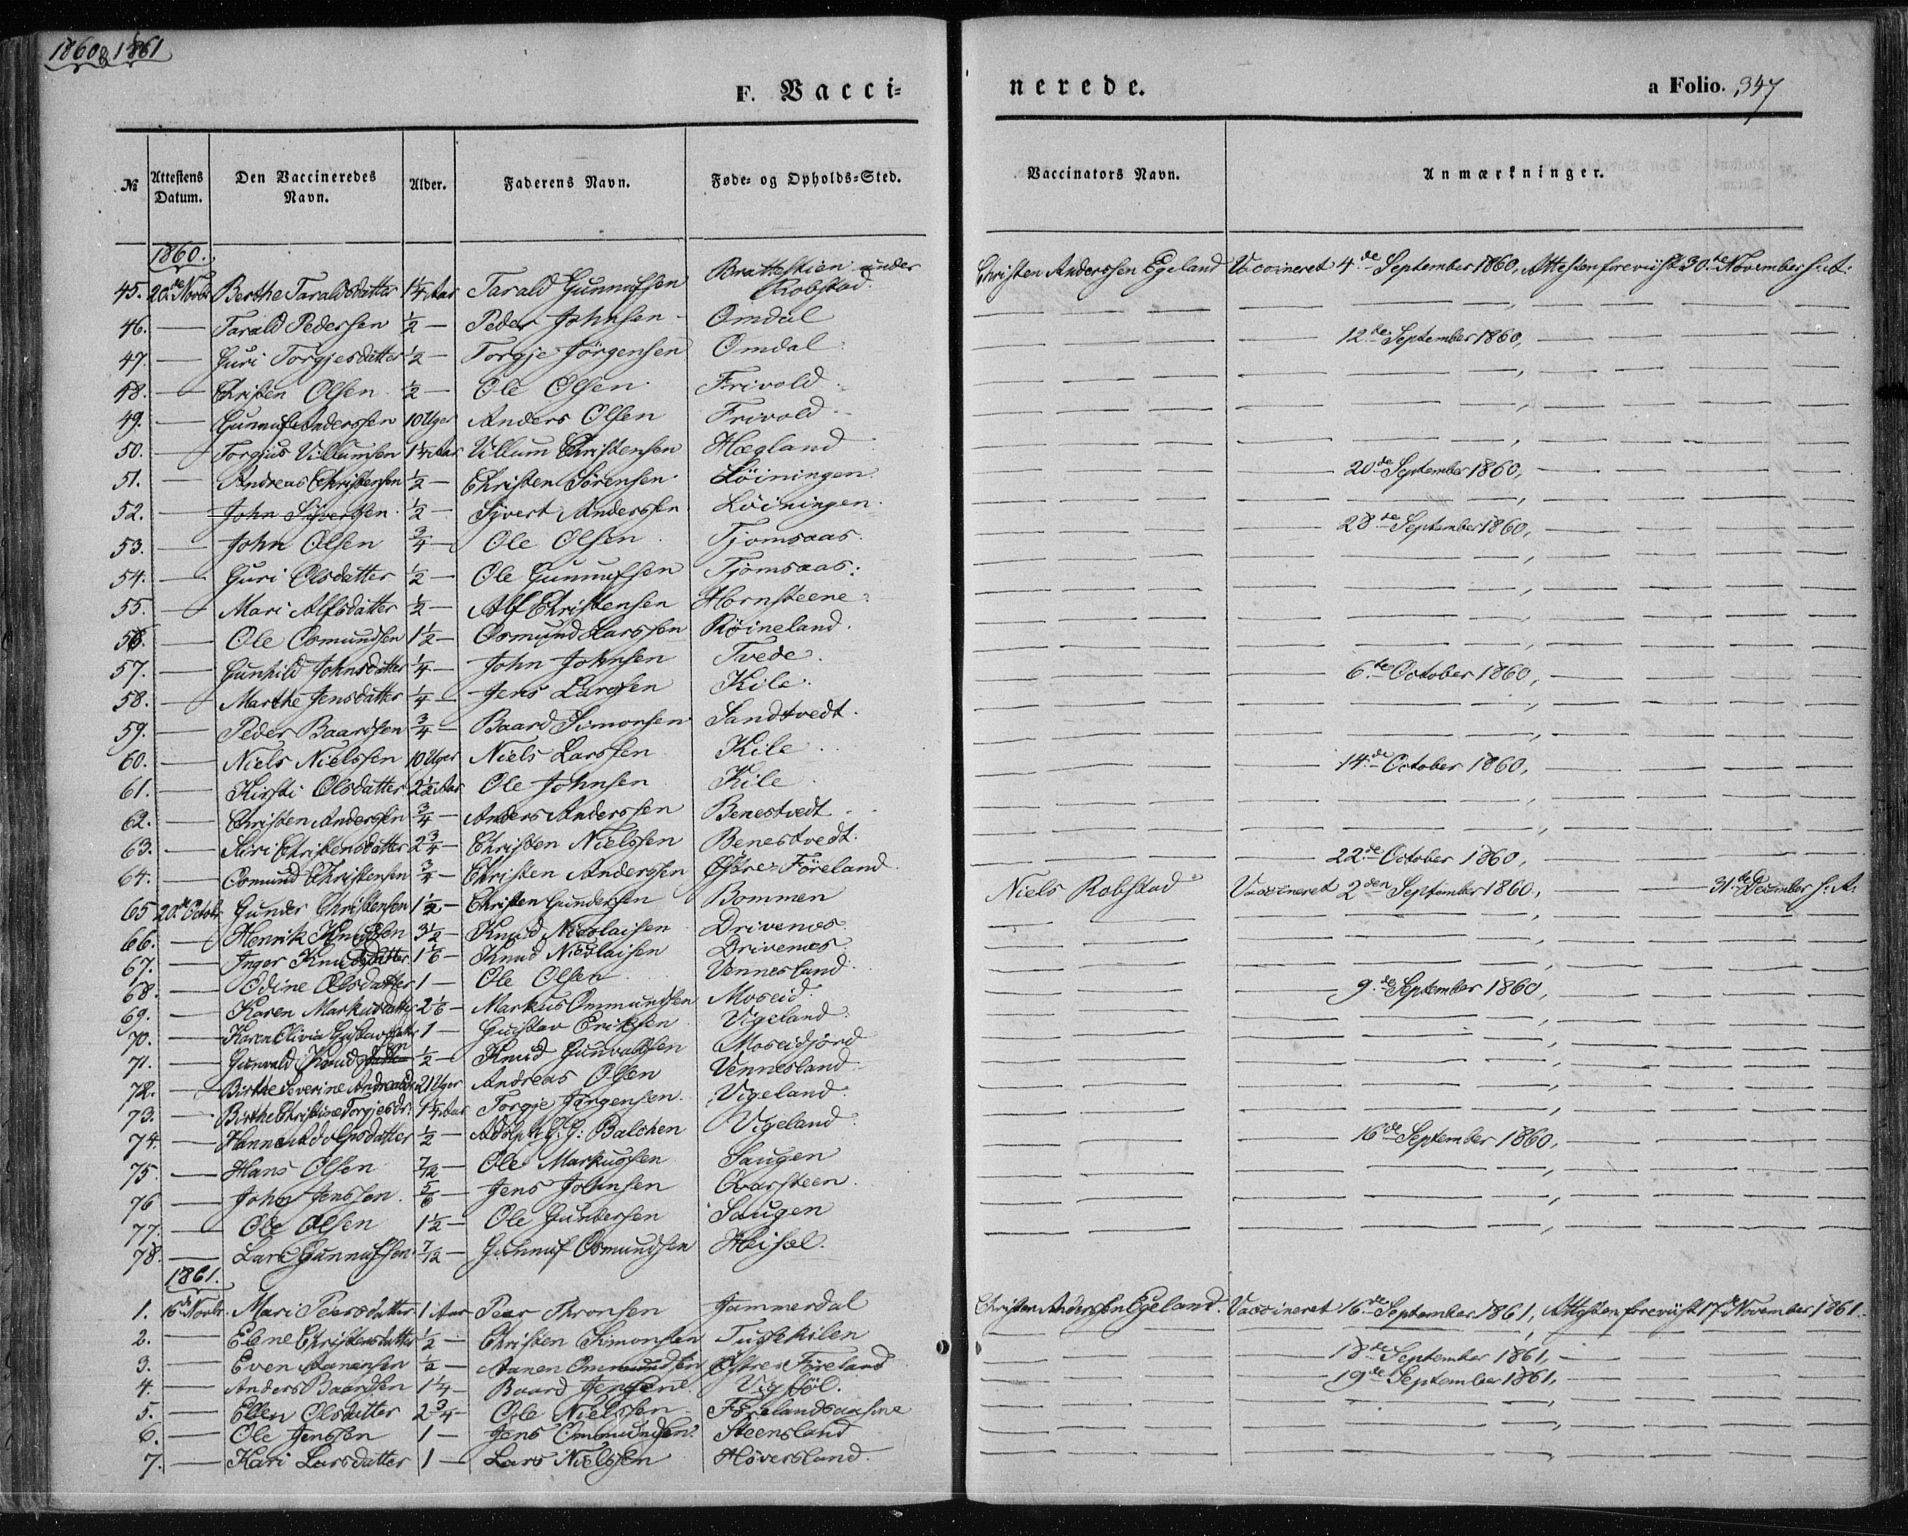 1860 & 1861
F. Vacci=
nerede.
a Folio. 347
№
Attestens Datum.
Den Vaccineredes Navn.
Alder.
Faderens Navn.
Føde= og Opholds=Sted.
Vaccinators Navn.
Anmærkninger.
1860.
45. 20de Novbr Berthe Taraldsdatter 1¼ Aar Tarald Gunnufsen Brattestien under Robstad. Christen Anderssen Egeland Vaccineret 4de September 1860, Attesten foreviist 30te November s: A:
46. — Tarald Pedersen ½ — Peder Johnsen Omdal — — —
47. — Guri Torgjesdatter ½ — Torgje Jørgensen Omdal — — 12de September 1860, — —
48. — Christen Olsen ½ — Ole Olsen Frivold — — —
49. — Gunnuf Anderssen 10 Uger Anders Olsen Frivold — — —
50. — Torgjus Villumsen 1¼ Aar Villum Christensen Hægland — — —
51. — Andreas Christensen ½ — Christen Sørensen Løiningen — — 20de September 1860, — —
52. — John Sivertsen ½ — Sivert Anderssen Løiningen — — —
53. — John Olsen ¾ — Ole Olsen Tjomsaas — — 28de September 1860, — —
54. — Guri Olsdatter ½ — Ole Gunnufsen Tjomsaas — — —
55. — Mari Alfsdatter ½ — Alf Christensen Hornsteene — — —
56. — Ole Osmundsen 1½ — Osmund Larssen Røineland — — —
57. — Gunhild Johnsdatter ¼ — John Johnsen Tvede — — —
58. — Marthe Jensdatter ¼ — Jens Larssen Kile — — 6te October 1860, — —
59. — Peder Baardsen ¾ — Baard Simonsen Sandtvedt — — —
60. — Niels Nielssen 10 Uger Niels Larssen Kile — — —
61. — Kirsti Olsdatter 2½ Aar Ole Johnsen Kile — — 14de October 1860, — —
62. — Christen Anderssen ¾ — Anders Anderssen Benestvedt — — —
63. — Siri Christensdatter 2¾ — Christen Nielssen Benestvedt — — —
64. — Osmund Christensen ¾ — Christen Anderssen Østre=Föreland — — 22de October 1860, — —
65 20de Octobr Gunder Christensen 1½ — Christen Gundersen Bommen Niels Robstad Vaccineret 2den September 1860, — — 31te December s: A:
66. — Henrik Knudsen 3½ — Knud Nicolaisen Drivenes — — —
67. — Inger Knudsdatter 1⅙ — Knud Nicolaisen Drivenes — — —
68. — Odine Olsdatter 1 — Ole Olsen Vennesland — — —
69. — Karen Markusdatter 2⅙ — Markus Ommundsen Moseid — — 9de September 1860, — —
70. — Karen Olivia Gustavsdatter 1 — Gustav Eriksen Vigeland — — —
71. — Gunvald Knudsen ½ — Knud Gunvaldsen Moseidjord — — —
72. — Birthe Severine Andreasdr 21 Uger Andreas Olsen Vennesland — — —
73. — Birthe Christine Torgjesdr: 1¼ Aar Torgje Jørgensen Vigeland — — —
74. — Hanna Adolphsdatter ½ — Adolph G. G: Balchen Vigeland — — —
75. — Hans Olsen 7/12 — Ole Markussen Saugen — — 16de September 1860, — —
76 — John Jenssen 5/6 — Jens Johnsen Qvarsteen — — —
77. — Ole Olsen 1½ — Ole Gundersen Saugen — — —
78. — Lars Gunnufsen 7/12 — Gunnuf Osmundsen Heisel. — — —
1861.
1. 16de Novbr. Mari Peersdatter 1 Aar Peer Thronsen Jammerdal Christen Anderssen Egeland. Vaccineret 16de September 1861, Attesten foreviist 17de November 1861.
2. — Elene Christensdatter ½ — Christen Simonsen Tuptekilen — — —
3. — Even Aanensen ½ — Aanen Ommundsen Østre Föreland — — 18de September 1861, —
4. — Anders Baardsen 1¼ — Baard Jensen Vigstöl. — — 19de September 1861, —
5. — Ellen Olsdatter 2¾ — Ole Nielssen Förelandsaasene — — —
6. — Ole Jenssen 1 — Jens Ommundsen Steensland — — —
7. — Kari Larsdatter 1 — Lars Nielssen Høversland — — —